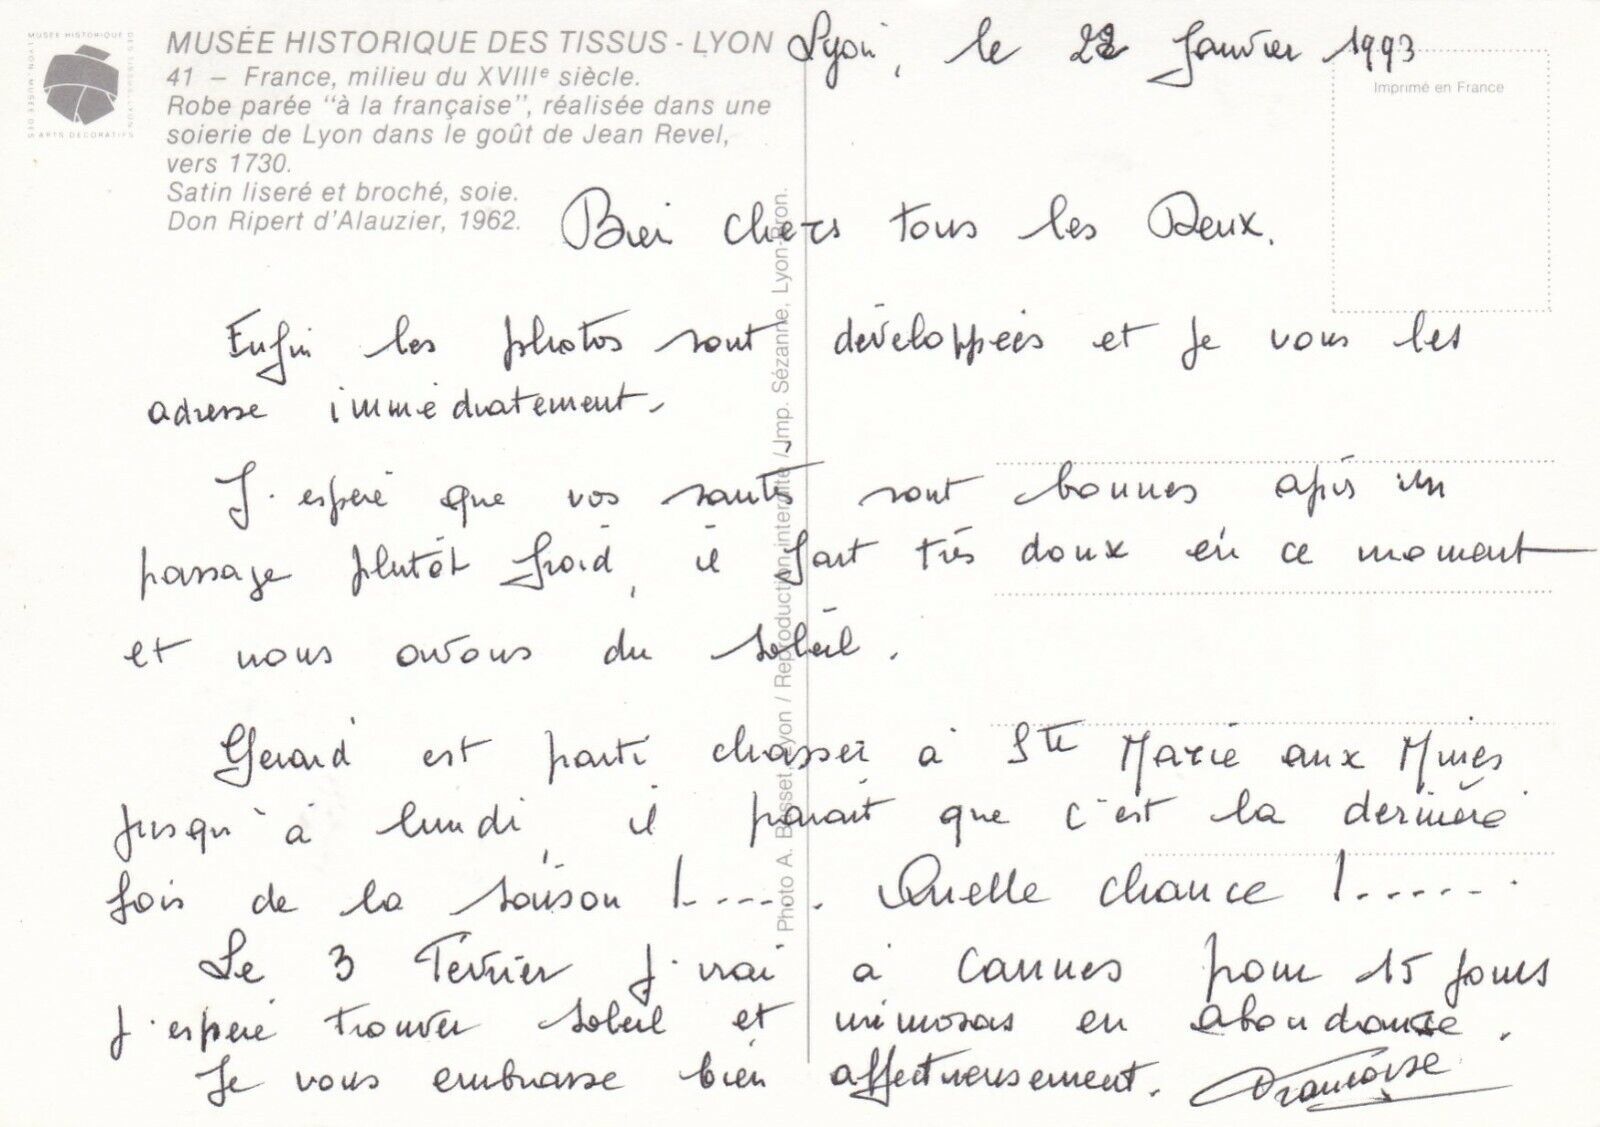 MUSÉE HISTORIQUE DES TISSUS - LYON
41 – France, milieu du XVIIIe siècle.
Robe parée "à la française", réalisée dans une
soierie de Lyon dans le goût de Jean Revel,
vers 1730.
Satin liseré et broché, soie.
Don Ripert d'Alauzier, 1962.
MUSÉE HISTORIQUE DES TISSUS - LYON. MUSÉE DES ARTS DÉCORATIFS
Imprimé en France
Photo A. Basset, Lyon / Reproduction interdite / Imp. Sézanne, Lyon-Bron.
Lyon, le 22 Janvier 1993
Bien chers tous les Deux.
Enfin les photos sont développées et je vous les
adresse immédiatement.
J'espère que vos santés sont bonnes après un
passage plutôt froid, il fait très doux en ce moment
et nous avons du soleil.
Gérard est parti chasser à Ste Marie aux Mines
jusqu'à lundi, il parait que c'est la dernière
fois de la saison !..... Quelle chance !......
Le 3 Février j'irai à Cannes pour 15 jours
j'espère trouver soleil et mimosas en abondance.
Je vous embrasse bien affectueusement. Françoise